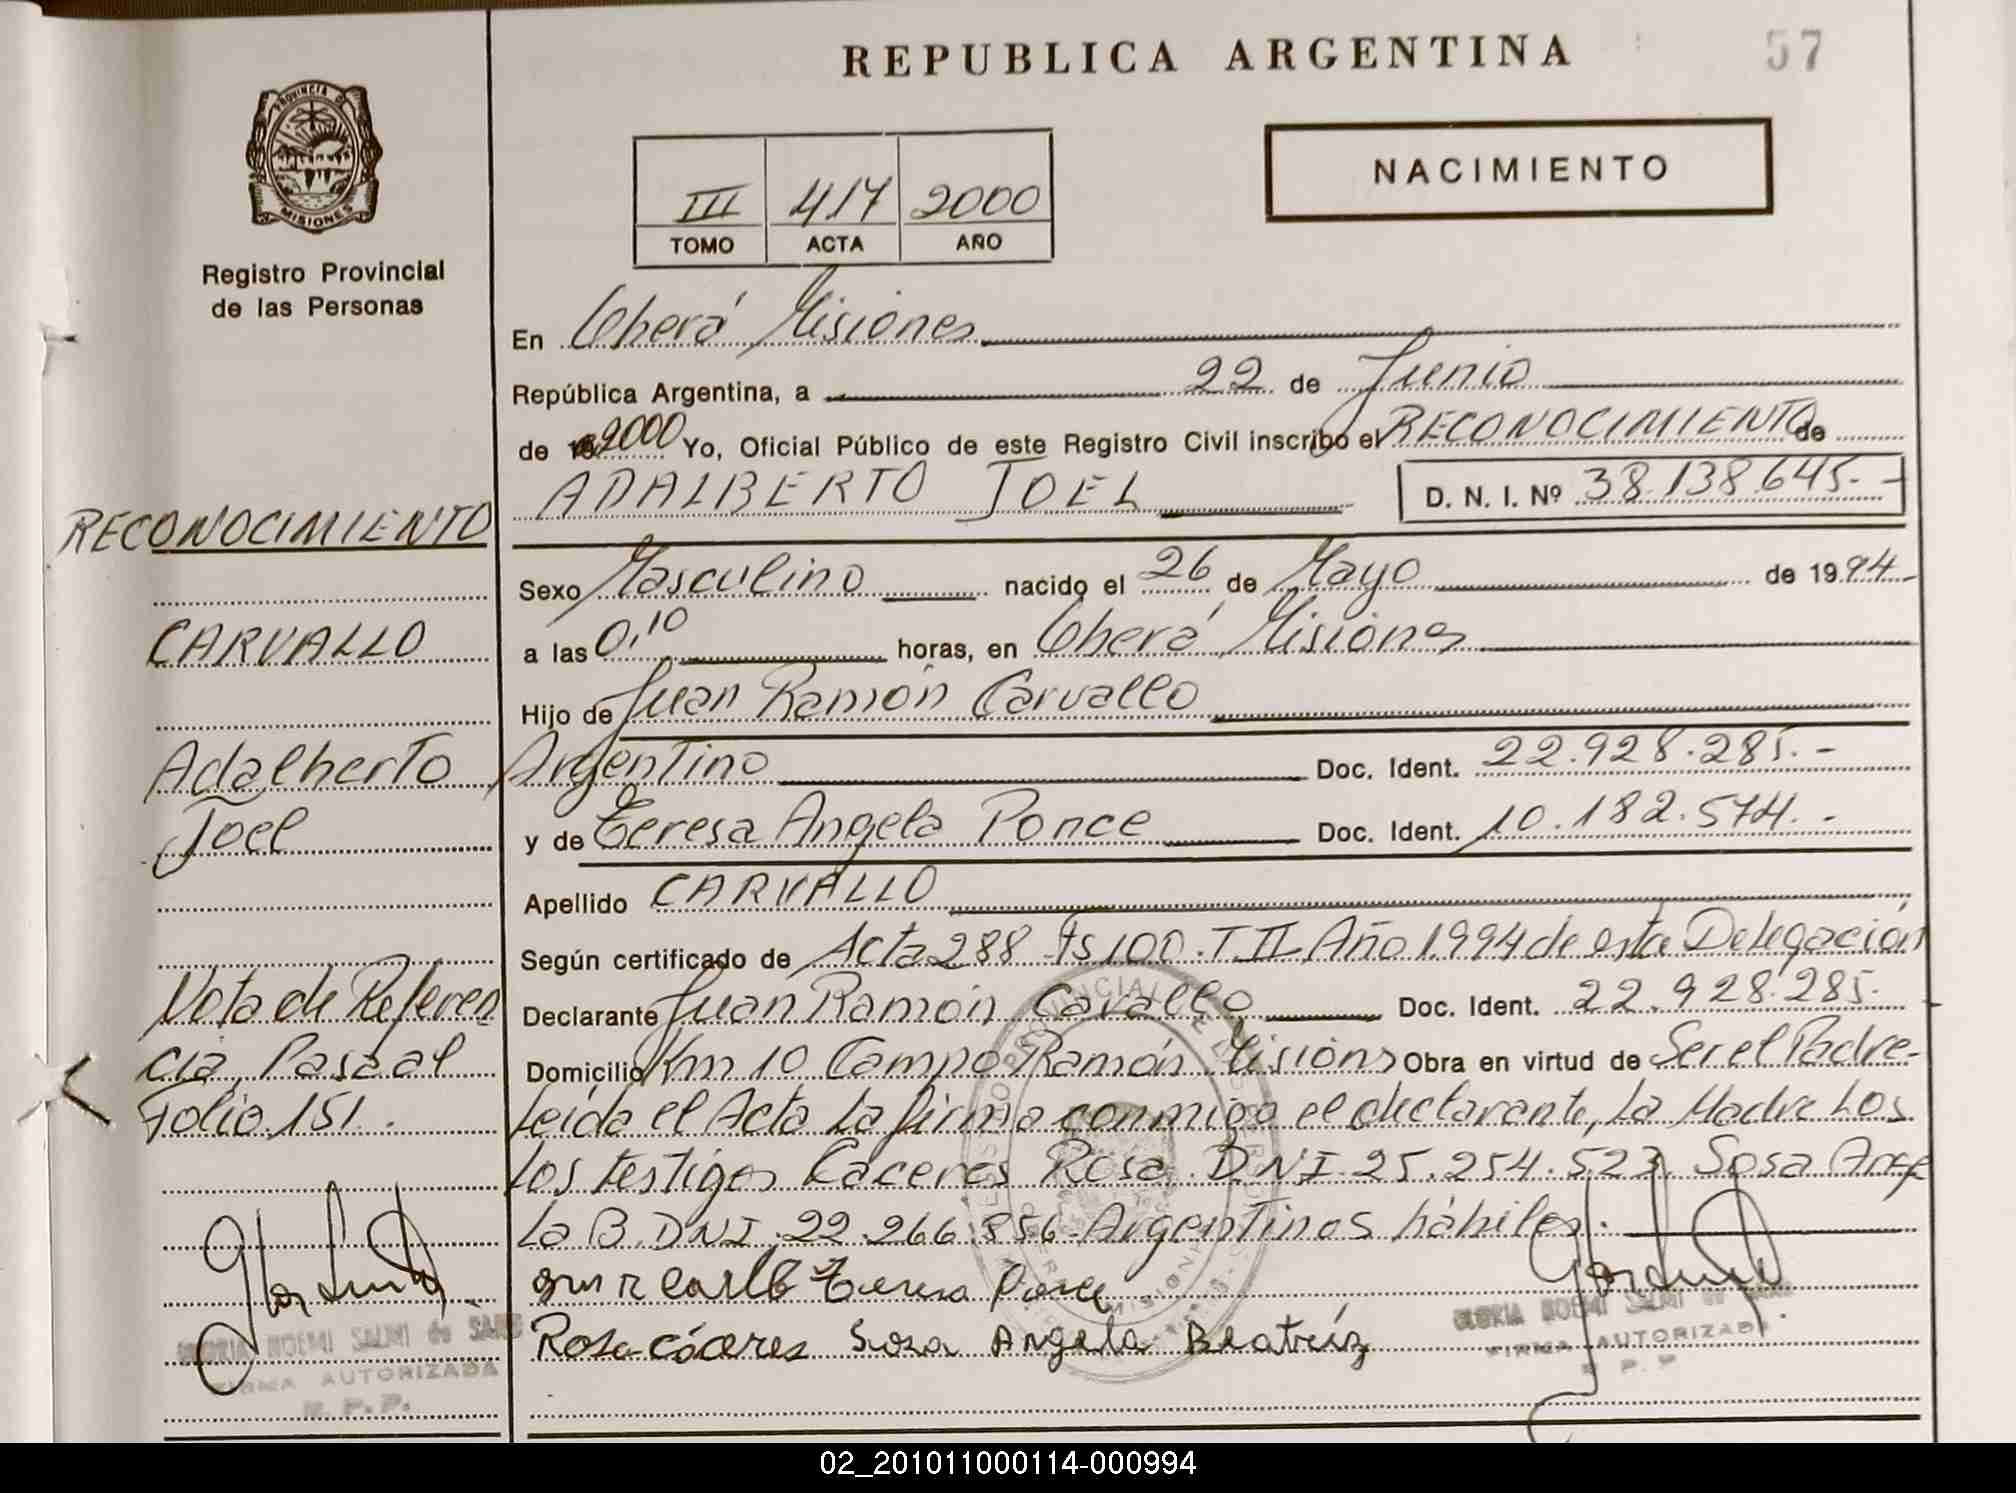 REPUBLICA ARGENTINA
57
PROVINCIA DE
MISIONES
Registro Provincial
de las Personas
III 417 2000
TOMO ACTA AÑO
NACIMIENTO
En Oberá Misiones
República Argentina, a 22 de Junio
de 2000 Yo, Oficial Público de este Registro Civil inscribo el RECONOCIMIENTO de
ADALBERTO JOEL D. N. I. Nº 38.138.645.-
Sexo Masculino nacido el 26 de Mayo de 1994
a las 0,10 horas, en Oberá Misiones
Hijo de Juan Ramón Carvallo
Argentino Doc. Ident. 22.928.285.-
y de Teresa Angela Ponce Doc. Ident. 10.182.574.-
Apellido CARVALLO
Según certificado de Acta 288 Fs 100 T II Año 1994 de esta Delegación
Declarante Juan Ramón Cavallo Doc. Ident. 22.928.285.
Domicilio Km 10 Campo Ramón Misions Obra en virtud de Ser el Padre-
Leída el Acta la firma conmigo el declarante, La Madre Los
Los testigos Caceres Rosa DNI 25.254.523 Sosa Ange
la B. DNI 22.266.856 Argentinos hábiles.
Teresa Ponce
Rosa cáceres Sosa Angela Beatríz
RECONOCIMIENTO
CARVALLO
Adalberto
Joel
Nota de Referen
cia Pasa al
Folio 151.
GLORIA NOEMI SALMI de
FIRMA AUTORIZADA
R. P. P.
GLORIA NOEMI SALMI de
FIRMA AUTORIZADA
R. P. P.
02_201011000114-000994